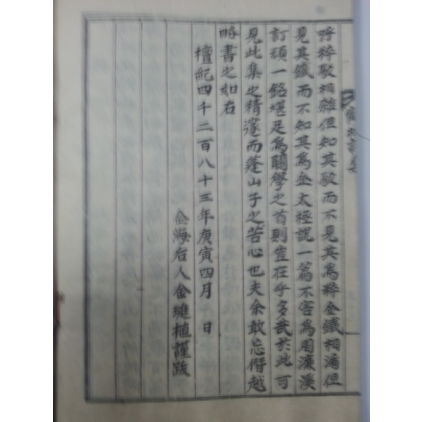 呼粹駁相雜但知其駁而不見其爲粹金鐵相溷但
見其鐵而不知其爲金太極說一篇不害爲周濂溪
訂頑一銘堪足爲關學之首則豈在乎多哉於此可
見此集之精邃而蓬山子之苦心也夫余敢忘僭越
略書之如右
檀紀四千二百八十三年庚寅四月 日
金海后人金璉植謹跋